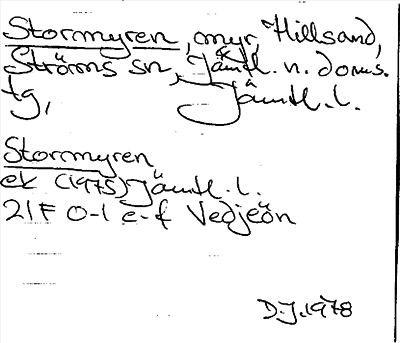 Stormyren, myr, Hillsand,
Ströms sn, Jämtl. n. doms.
tg, Jämtl. l.
Stormyren
ek (1975) Jämtl. l.
21F 0-1 e-f Vedjeön
D.J. 1978